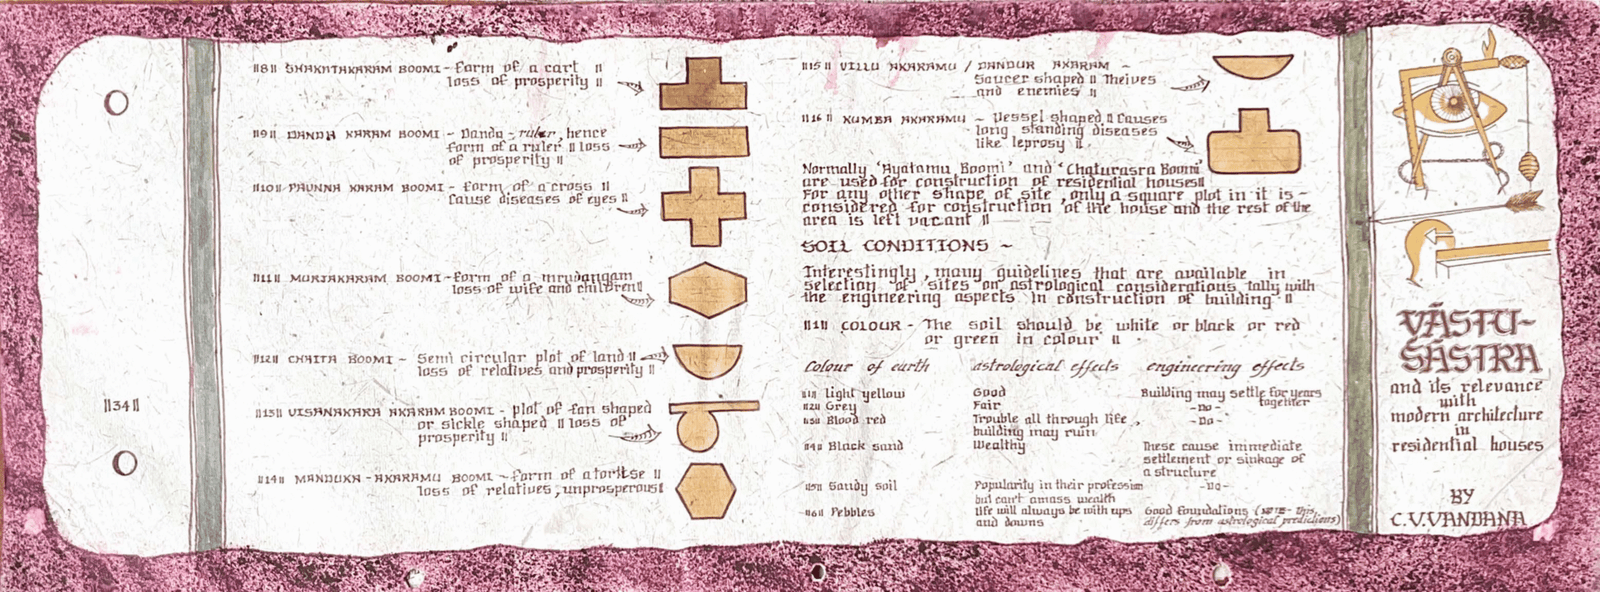 ॥8॥ SHAKATAKARAM BOOMI - form of a cart ॥
loss of prosperity ॥
॥9॥ DANDA KARAM BOOMI - Danda - ruler, hence
form of a ruler ॥ loss
of prosperity ॥
॥10॥ PAUNNA KARAM BOOMI - form of a cross ॥
Cause diseases of eyes ॥
॥11॥ MURJAKARAM BOOMI - form of a mrudangam
loss of wife and children॥
॥12॥ CHAITA BOOMI - Semi circular plot of land ॥
loss of relatives and prosperity ॥
॥13॥ VISANAKARA AKARAM BOOMI - plot of fan shaped
or sickle shaped ॥ loss of
prosperity ॥
॥14॥ MANDUKA - AKARAMU BOOMI - form of a tortise ॥
loss of relatives, unprosperous॥
॥34॥
॥15॥ VILLU AKARAMU / DANDUR AKARAM -
Saucer shaped ॥ Theives
and enemies ॥
॥16॥ KUMBA AKARAMU - Vessel shaped ॥ Causes
long standing diseases
like leprosy ॥
Normally 'Ayatamu Boomi' and 'Chaturasra Boomi'
are used for construction of residential houses॥
For any other shape of site, only a square plot in it is -
considered for construction of the house and the rest of the
area is left vacant ॥
SOIL CONDITIONS ~
Interestingly, many guidelines that are available in
selection of sites on astrological considerations tally with
the engineering aspects in construction of building ॥
॥1॥ COLOUR - The soil should be white or black or red
or green in colour ॥
Colour of earth astrological effects engineering effects
॥1॥ Light yellow Good Building may settle for years
together
॥2॥ Grey Fair -Do-
॥3॥ Blood red Trouble all through life, -Do-
building may ruin
॥4॥ Black sand Wealthy These cause immediate
settlement or sinkage of
a structure
॥5॥ Sandy soil Popularity in their profession -Do-
but can't amass wealth
॥6॥ Pebbles life will always be with ups Good foundations (NOTE - this
and downs differs from astrological predictions)
VĀSTU-
SĀSTRA
and its relevance
with
modern architecture
in
residential houses
BY
C.V.VANDANA